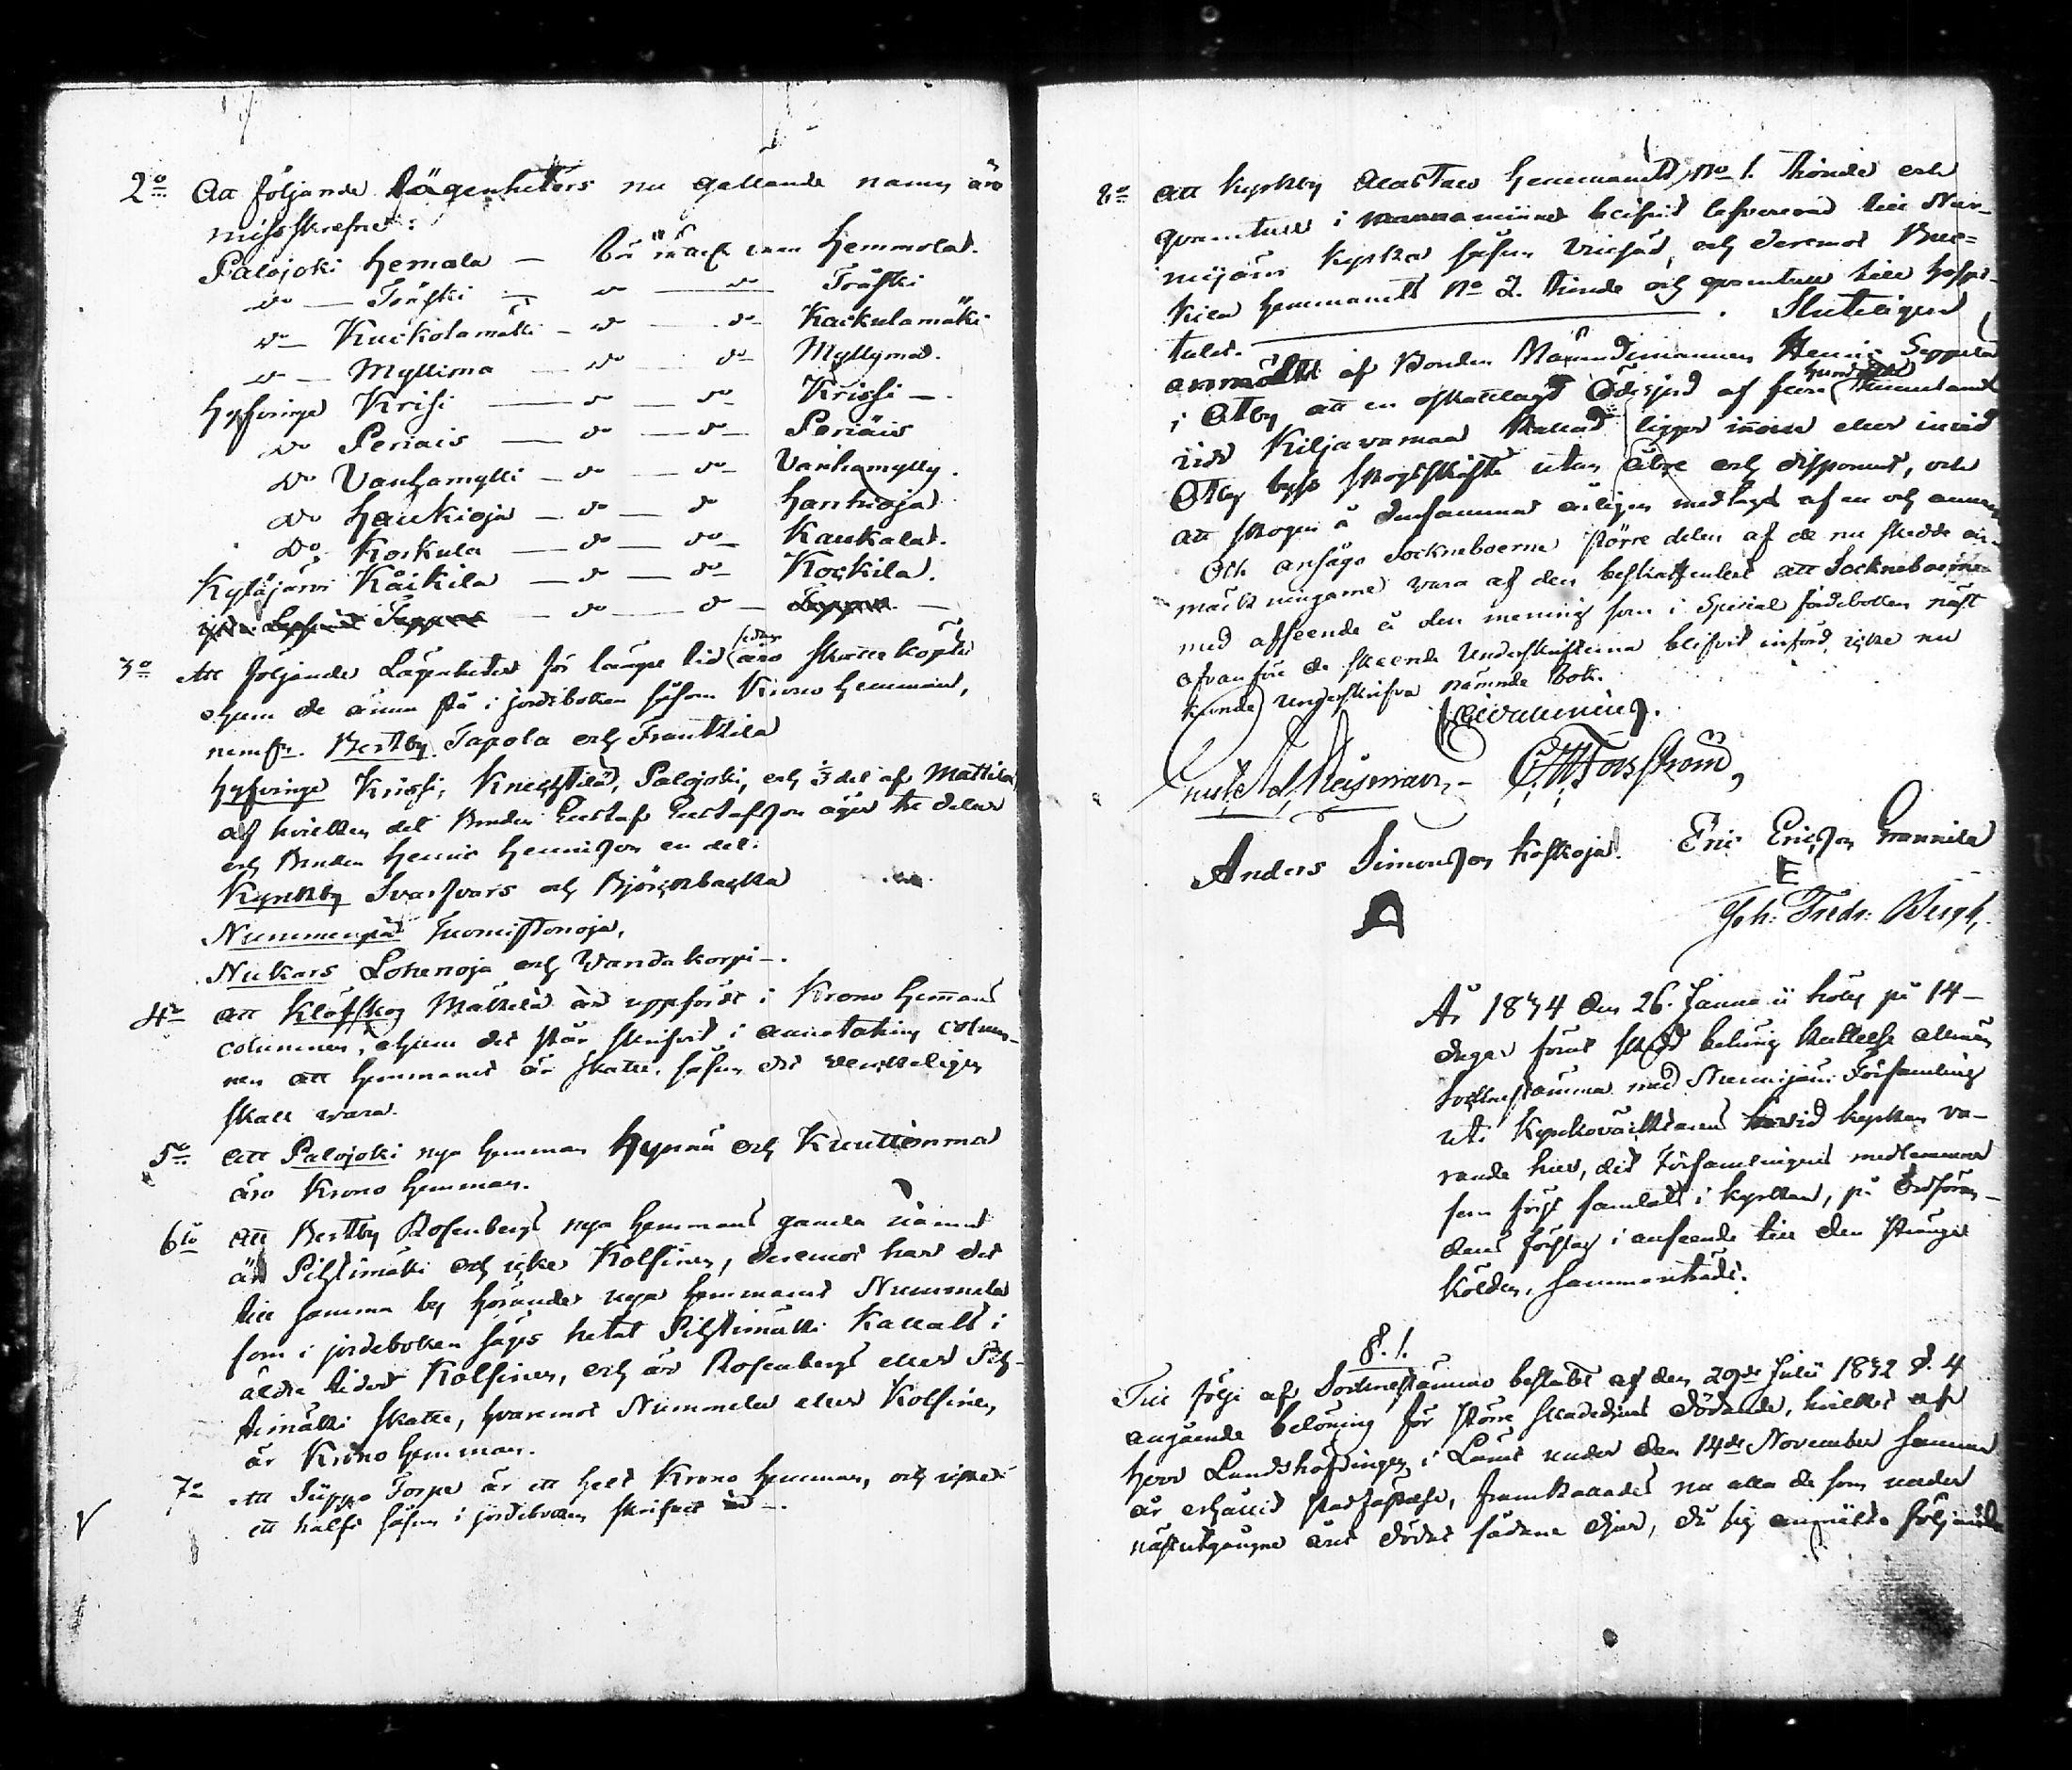 2o Att följande Lägenheters nu gällande namn äro
missskrefne:
Palojoki Hemala — bör vara Hemmola.
do — Träfski — do — do Tråfski
do — Kuckolamäki — do — do Kaikulamäki
do — Myllima — do — do Myllymaa.
Hyfvinge Krisi — do — do Krissi —
do Periais — do — do Periäis
do Vanhamylli — do — do Vanhamylly.
do Haukioja — do — do Hanhioja
do Koskula — do — do Kaukala.
Kytäjärvi Kåikila — do — do Koskila.
3o Att följande Lägenheter för längre tid sedan äro Skatteköpte
ehuru de ännu stå i jordeboken såsom Krono Hemman,
nemln. Bertby Tapola och Franttila
Hyfvinge Krissi, Knechtilä, Palojoki, och 1/3 del af Mattila
af hvilken del Bonden Gustaf Gustafsson äger tre delar
och Bonden Henric Henricsson en del.
Kyrkby Svarfvars och Björckbacka
Nummenpää Tuomistonoja,
Nukars Lohenoja och Wandakorpi —.
4o Att Klöfskog Mattila är uppfördt i Krono Hemans
columnen, ehuru det står skrifvit i annotations colum-
nen att Hemmanet är Skatte, såsom det verkeligen
skall wara.
5o Att Palojoki nya Hemman Hynnä och Kuuttinmaa
äro Krono Hemman.
6to Att Bertby Rosenbergs nya Hemmans gamla namn
är Pihstimäki och icke Kolsinen, deremot har det
till samma by hörande nya Hemmanet Nummela
som i jordeboken säges hetat Pihstimäki kallats i
äldre tider Kolsinen, och är Rosenbergs eller Pih-
stimäki Skatte, hvaremot Nummela eller Kolsinen
är Krono Hemman.
7o Att Seppo Torpa är ett helt Krono Hemman, och icke
ett halft såsom i jordeboken skrifvit är —.
V
8o Att Kyrkby Alastalo Hemmanets No 1. tionde och
qvarntull i manna minne blifvit lefvererad till Nur-
mijärvi Kyrka såsom , och deremot
kila Hemmanets No 2. tionde och qvarntull till Hospi-
talet. —. Sluteligen
anmältes af Bonden Nämndemannen Henric Seppälä
i Otby, att en oskattlagd Ödesjord af flere hundrade Tunneland
vid Kiljavamaa kallad ligger innom eller invid
Otby bys skogsskifte utan åbo och disponent, och
att skogen å densamma årligen medtages af en och annan
Och ansågo Socknéboerne större delen af de nu skedde an-
märkningarne vara af den beskaffenhet att Sockneboerne
med afseende å den mening som i Special Jordeboken näst
ofvanföre de skeende Underskrifterna blifvit införd, icke nu
kunde underskrifva nämnde bok.
In fidem
Anders Simonsson Koskioja. Eric Ericsson Grannila
A E
Joh: Fredr: Bergh.
År 1834 den 26. Januarii hölls på 14-
dagar förut skedd behörig kallelse allmän
Sockenstämma med Nurmijärvi Församling
uti Kyrkovärdens invid kyrkan va-
rande hus, dit Församlingens medlemmar
som först samlats i kyrkan, på Ordföran-
dens förslag i anseende till den stränga
kölden, sammanträdt.
§. 1.
Till följe af Sockenstämmo beslutet af den 29de Julii 1832 §. 4
angående belöning för större skadedjurs dödande, hvilket af
Herr Landshöfdingen i Länet under den 14de November samma
år erhållit stadfästelse, framkallades nu alla de som under
nästutgångne året dödat sådane djur, då sig anmälte följande